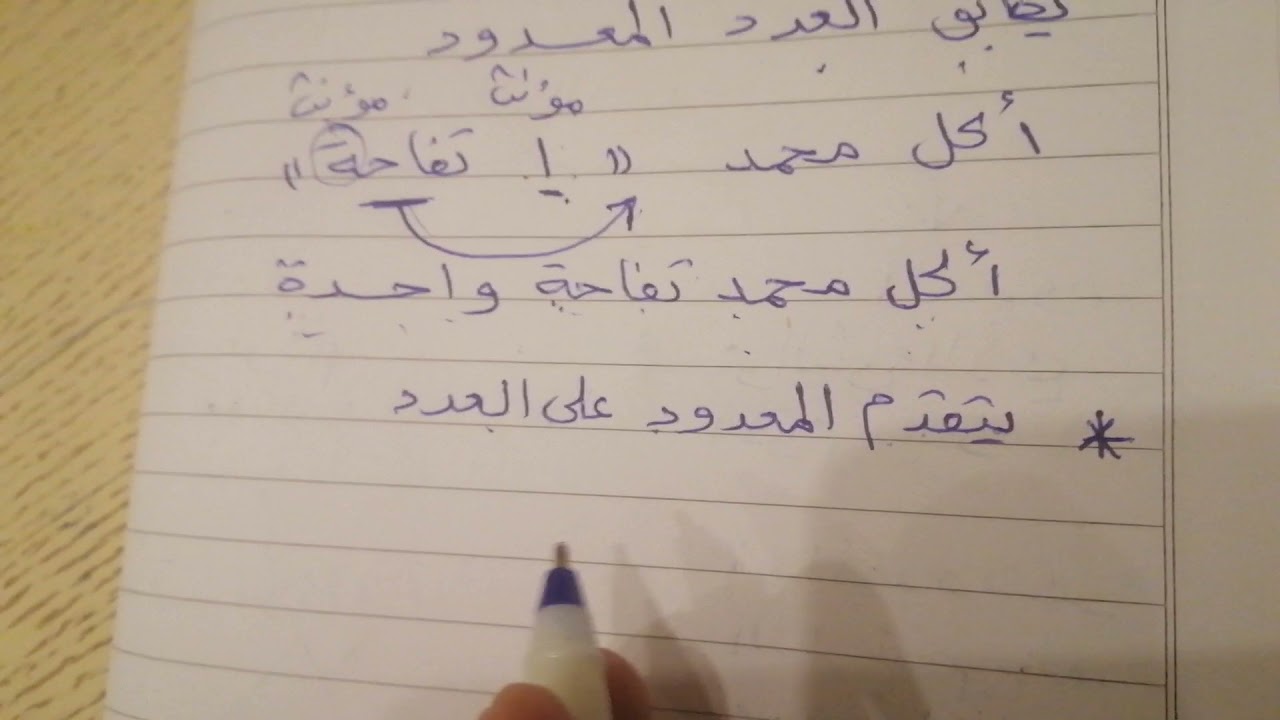 يطابق العدد المعدود
مؤنث مؤنث
أكل محمد (( 1 تفاحة ))
أكل محمد تفاحة واحدة
* يتقدم المعدود على العدد